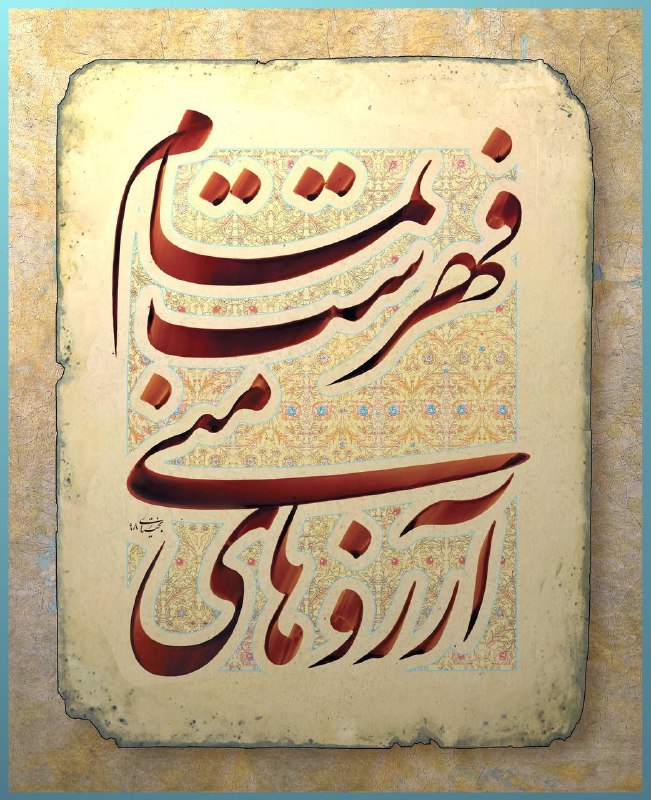 فهرست تمام
آرزوهای منی